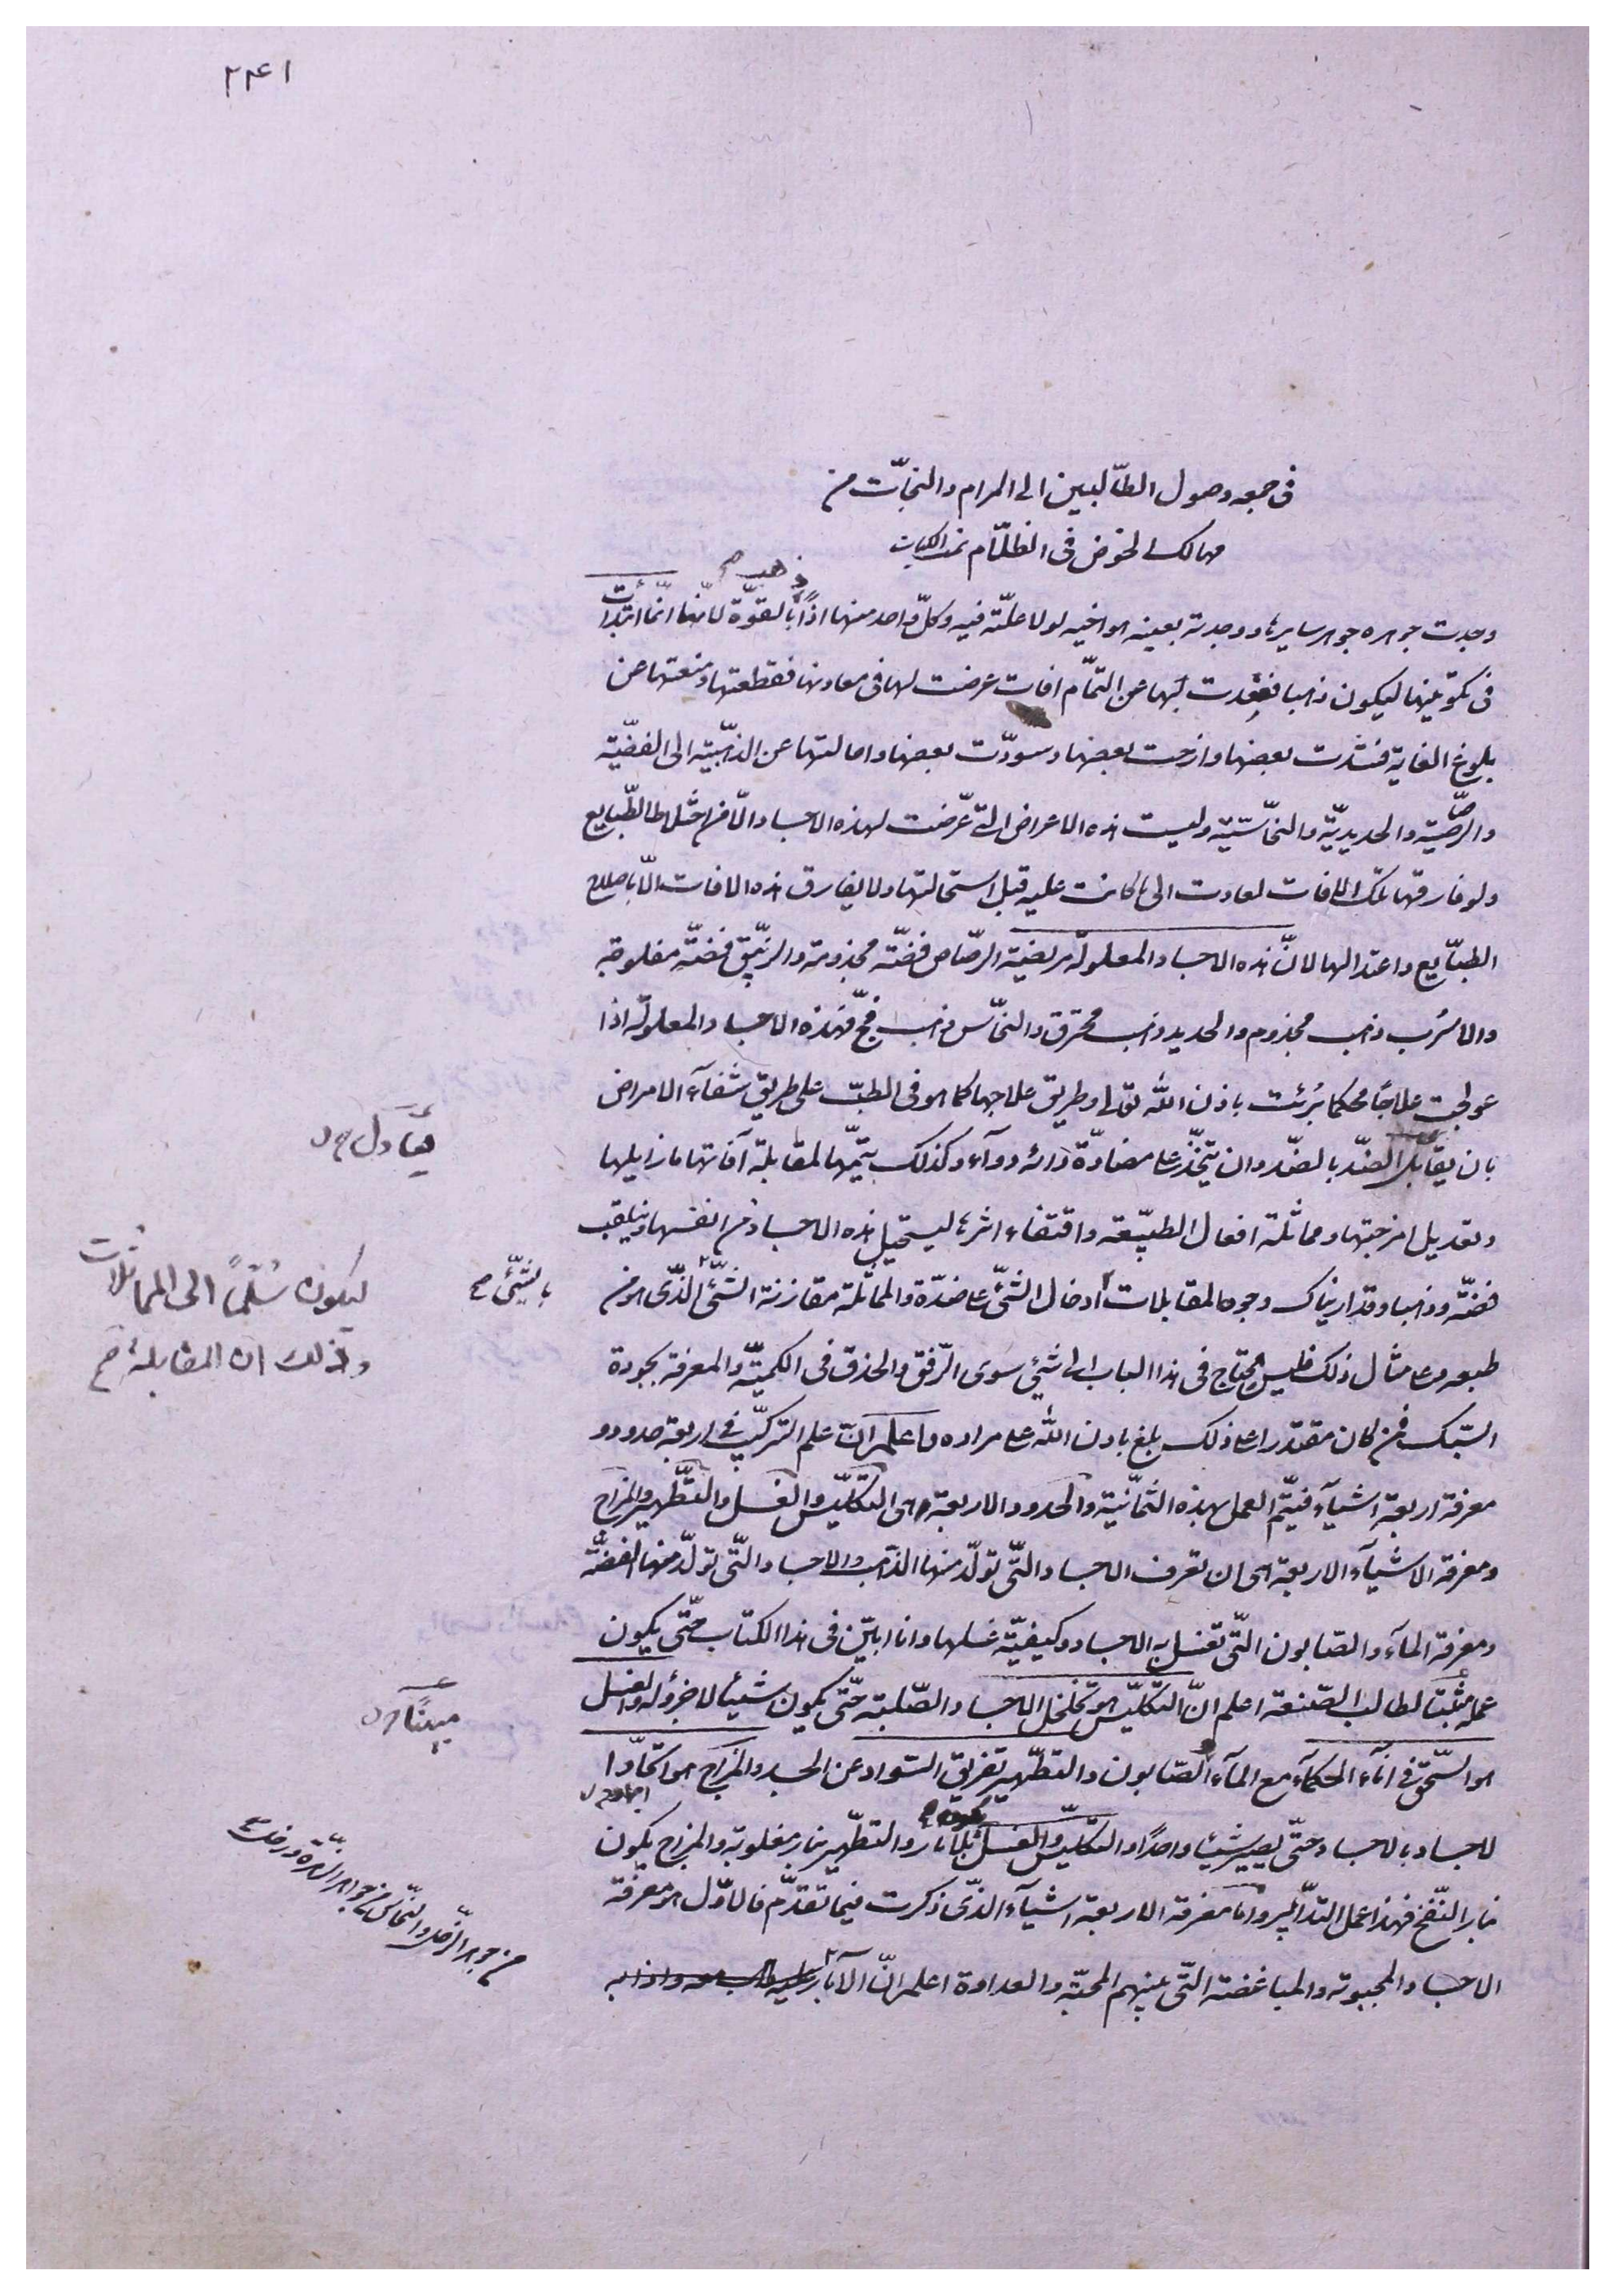 ٢٤١
فى جمعه وصول الطّالبين الى المرام والنجّات من
مهالك الخوض فى الظلّام
ذهب صح
وجدت جوهره جوهر سايرها ووجدته بعينه هو اخيه لولا علّته فيه وكلّ واحد منها اذًا بالقوّة لانّها انّما ابتدأت
فى تكوّينها ليكون ذهبا فقعدت بها عن التمّام افات عرضت لها فى معادنها فقطعتها ومنعتها عن
بلوغ الغاية بعضها وازحت بعضها وسودّت بعضها وامالتها عن الذهبّية الى الفضّية
والرصّاصية والحديديّة والنحّاسيّة وليست هذه الاعراض الّتى عرّضت لهذه الاجساد الّا من اختلاط الطّبايع
ولو فارقتها تلك الافات لعادت الى ما كانت عليه قبل استحالتها ولا يفارق هذه الافات الّا باصلاح
الطبّايع واعتدالها لانّ هذه الاجساد المعلولة مريضة الرصّاص فضّة مجذومة والزيّبق فضّة مفلوجة
والاسرُب ذهب مجذوم والحديد ذهب محترق والنحّاس ذهب فجّ فهذه الاجساد المعلولة اذا
عولجت علاجًا محكما بُرئت باذن الله تعالى وطريق علاجها كما هو فى الطبّ على طريق شفآء الامراض
بان يقابل الضدّ بالضدّ وان يتّخذ على مضادّة دائه دوآء وكذلك لمقابلة آفاتها ما زايلها
يعَادل ح ل
وتعديل امزجتها ومماثلة افعال الطبيّعة واقتفاء اثرها ليستحيل هذه الاجساد من انفسها وينقلب
فضّة وذهبا وقد اريناك وجوه المقابلات ادخال الشئّ على ضدّه والمماثلة مقارنة الشئّ الذّى هو من
بالشئّ صح
ليكون سُلّمًا الى المماثلات
وذلك ان المقابلة صح
طبعه وعلى مثال ذلك فليس يحتاج فى هذا الباب الى شئي سوى الرّفق والحذق فى الكميّة والمعرفة بجودة
السّبك فمن كان مقتدرا على ذلك بلغ باذن الله على مراده واعلم انّ علم التركيّب فى اربعة حدود و
معرفة اربعة اشيآء فيتمّ العمل بهذه الثمّانية والحدود الاربعة هى التكليّس والغسل والتطّهير والمزاج
ومعرفة الاشيآء الاربعة هى ان تعرف الاجساد التّى تولّد منها الذّهب والاجساد التّى تولّد منها الفضّة
ومعرفة المآء والصّابون التّى تغسل به الاجساد وكيفيّة غسلها وانا ابيّن فى هذا الكتاب حتّى يكون
عمله مثبتا لطالب الصّنعة اعلم انّ التكليّس هو تخلخل الاجساد الصّلبة حتّى يكون شيئا لا جزؤ له والغسل
مبينًا ح ل
هو السّحق فى انآء الحكمآء مع المآء والصّابون والتطّهير تفريق السّواد عن الجسد والمزاج هو اتحّاد ا
لاجساد بالاجساد حتّى يصير شيئا واحدًا والتكليّس والغسل بلا نار والتطّهير بنار مغلوبة والمزاج يكون
بنار النّفخ فهذا عمل التدّابير واما معرفة الاربعة اشيآء الذّى ذكرت فيما تقدّم فالاوّل هو معرفة
الاجساد المحبوبة والمباغضة التّى بينهم المحبّة والعداوة اعلم انّ الآبار
من جوهر الزّحل والنحّاس من جوهر الزّهرة